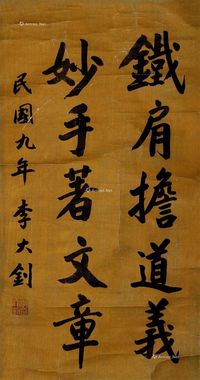 鐵肩擔道義
妙手著文章
民國九年 李大釗